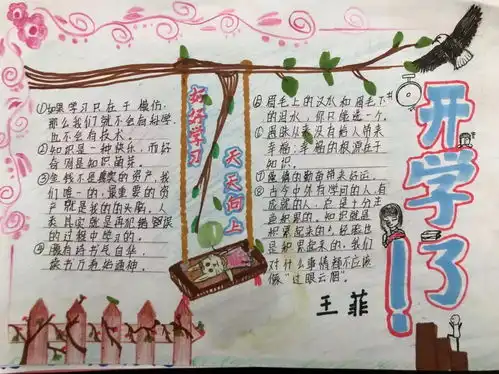 ①如果学习只在于模仿,
那么我们就不会有科学,
也不会有技术。
②知识是一种快乐,而好
奇则是知识的萌芽。
我
们唯一的,最重要的资
产就是我们的头脑,人
类其实就是再犯错误
的过程中学习的。
④腹有诗书气自华,
读书万卷始通神。
好好学习
天天向上
⑤眉毛上的汗水和眉毛下
的泪水,你只能选一个。
⑥愚昧从来没有给人带来
幸福,幸福的根源在于
知识。
的勤奋带来好运。
⑧古今中外有学问的人,有
成就的人,总是十分注
意积累的。知识就是
积累起来的,经验也
是积累起来的,我们
对什么事情都不应该
像"过眼云烟。
王菲
开学了!